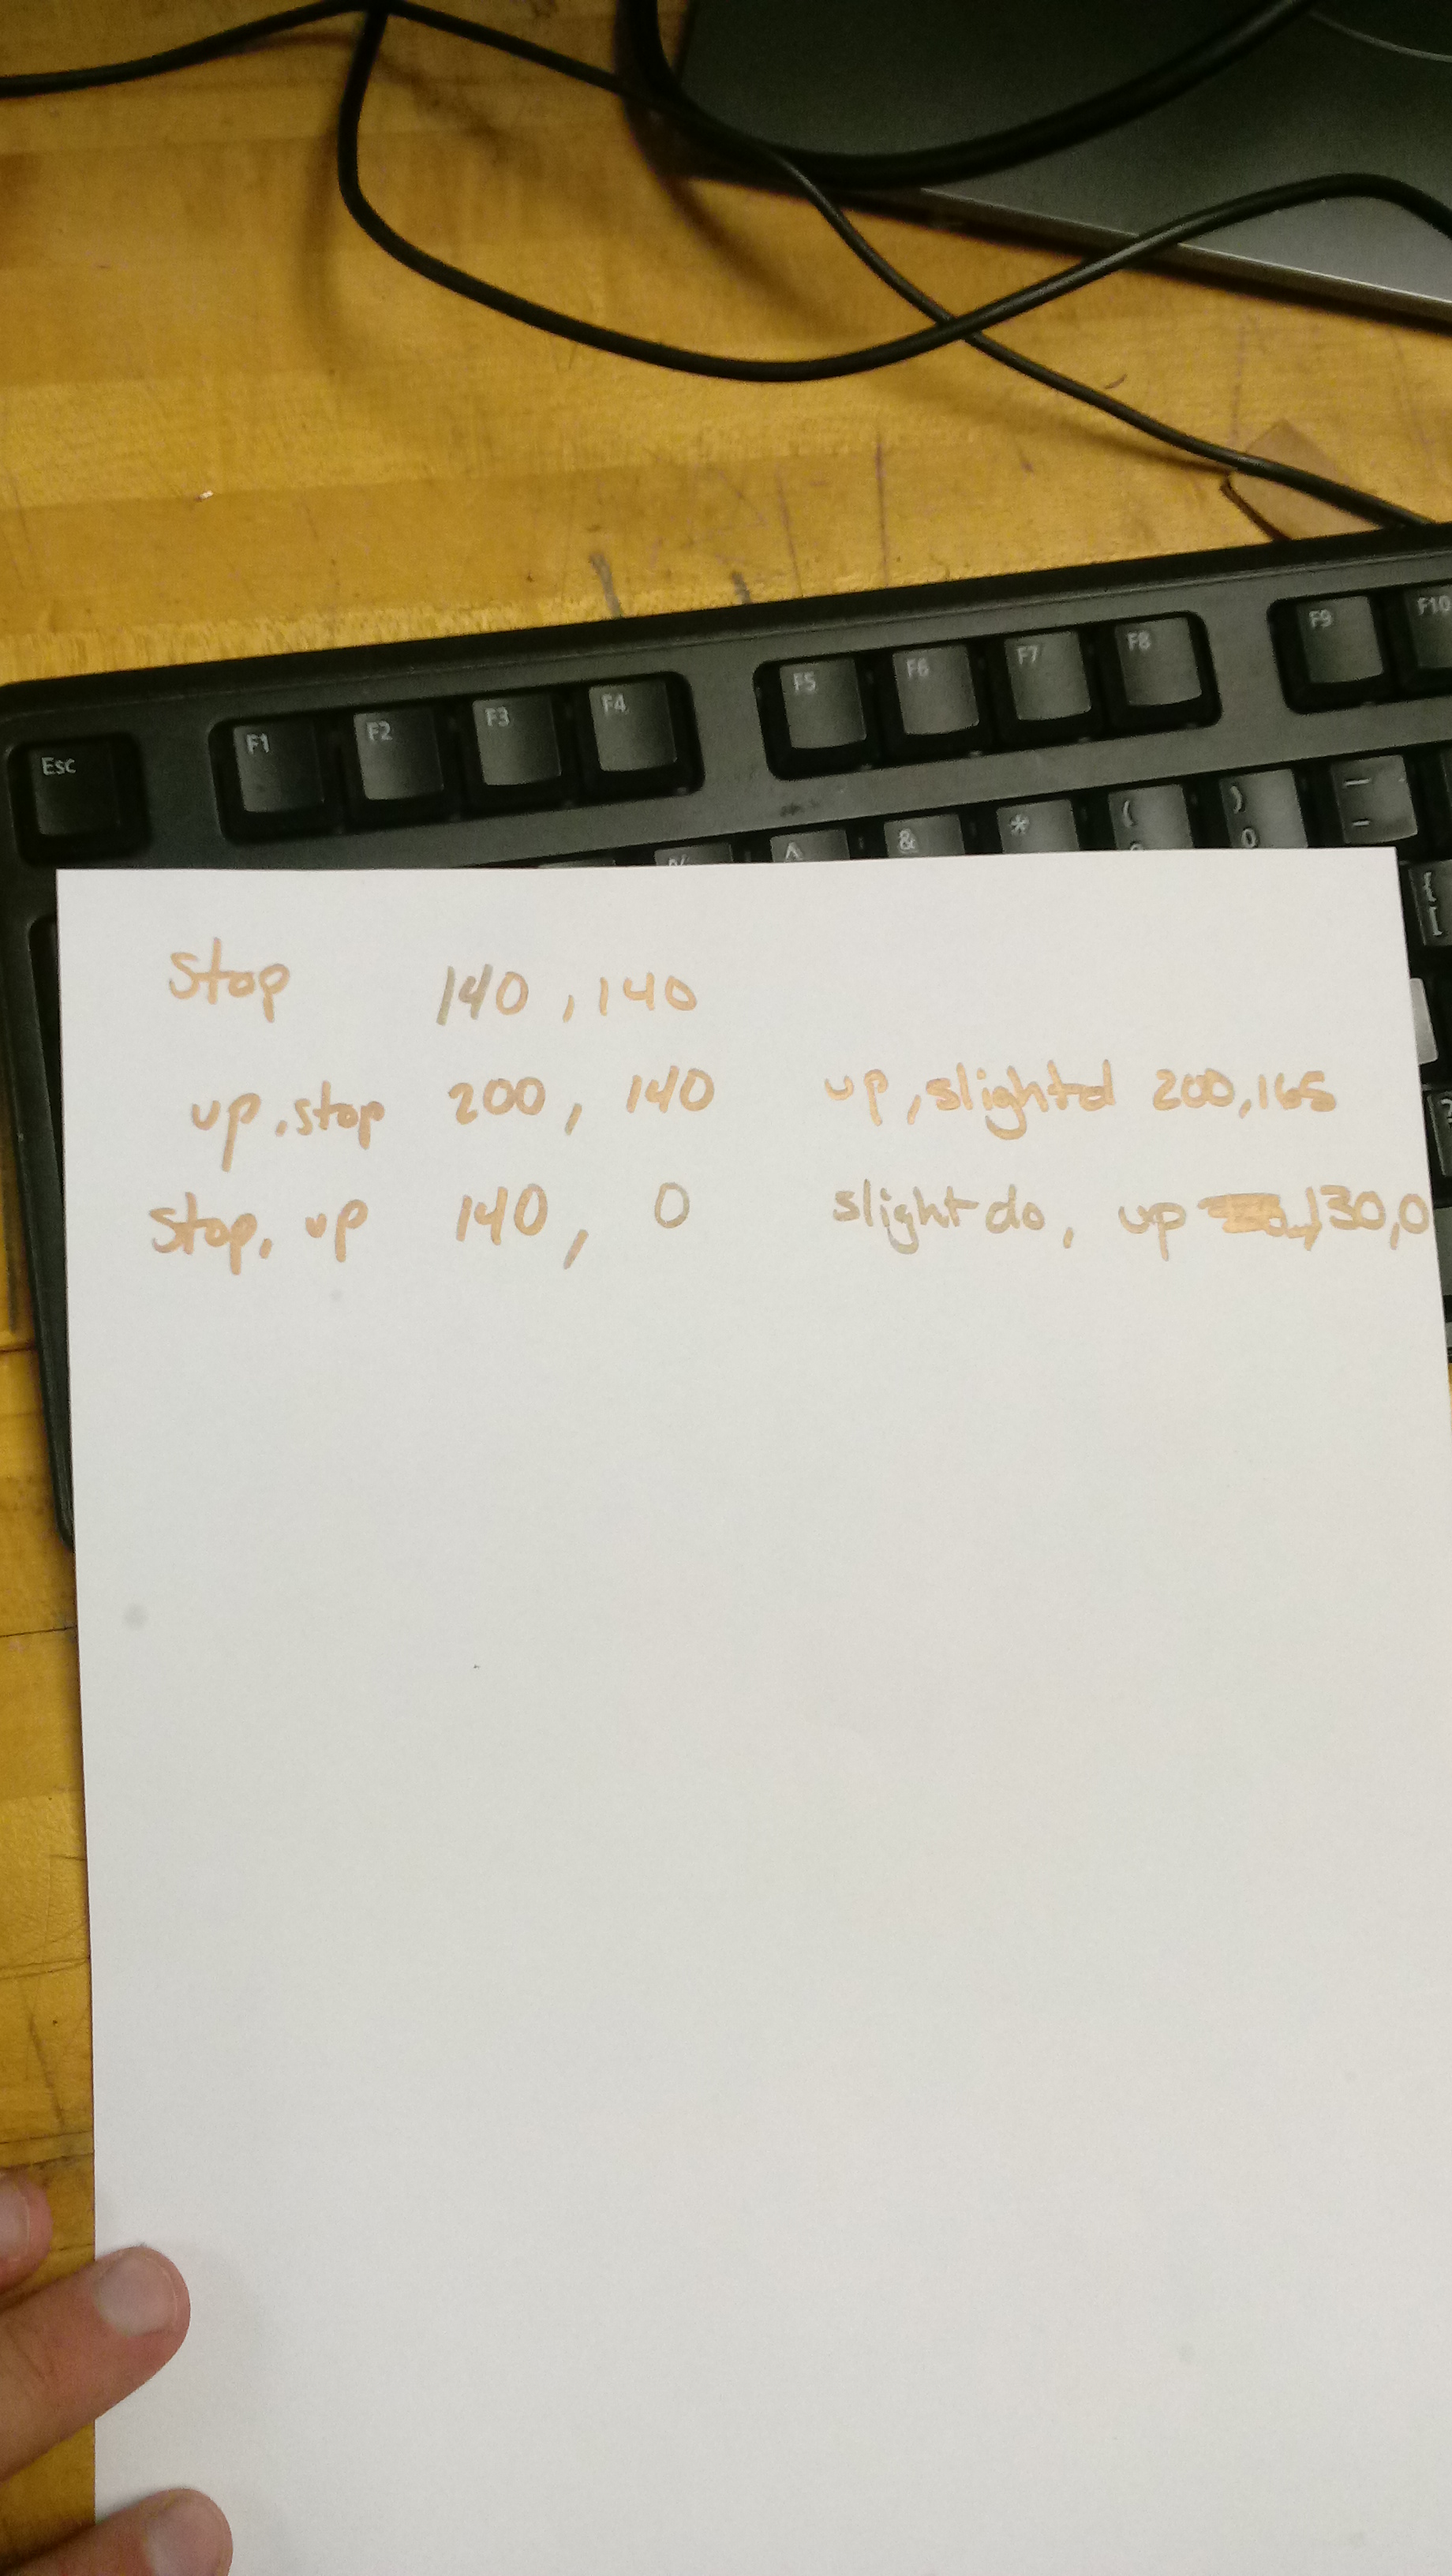 F9 F10
F5 F6 F7 F8
Esc F1 F2 F3 F4
^ & * ( ) 0
Stop 140, 140
up, stop 200, 140 up, slightd 200, 165
Stop, up 140, 0 slight do, up 130, 0